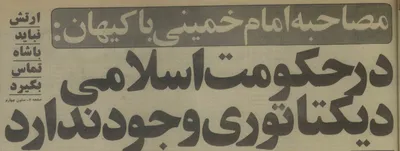 مصاحبه امام خمینی با کیهان:
در حکومت اسلامی
دیکتاتوری وجود ندارد
ارتش
نباید
با شاه
تماس
بگیرد